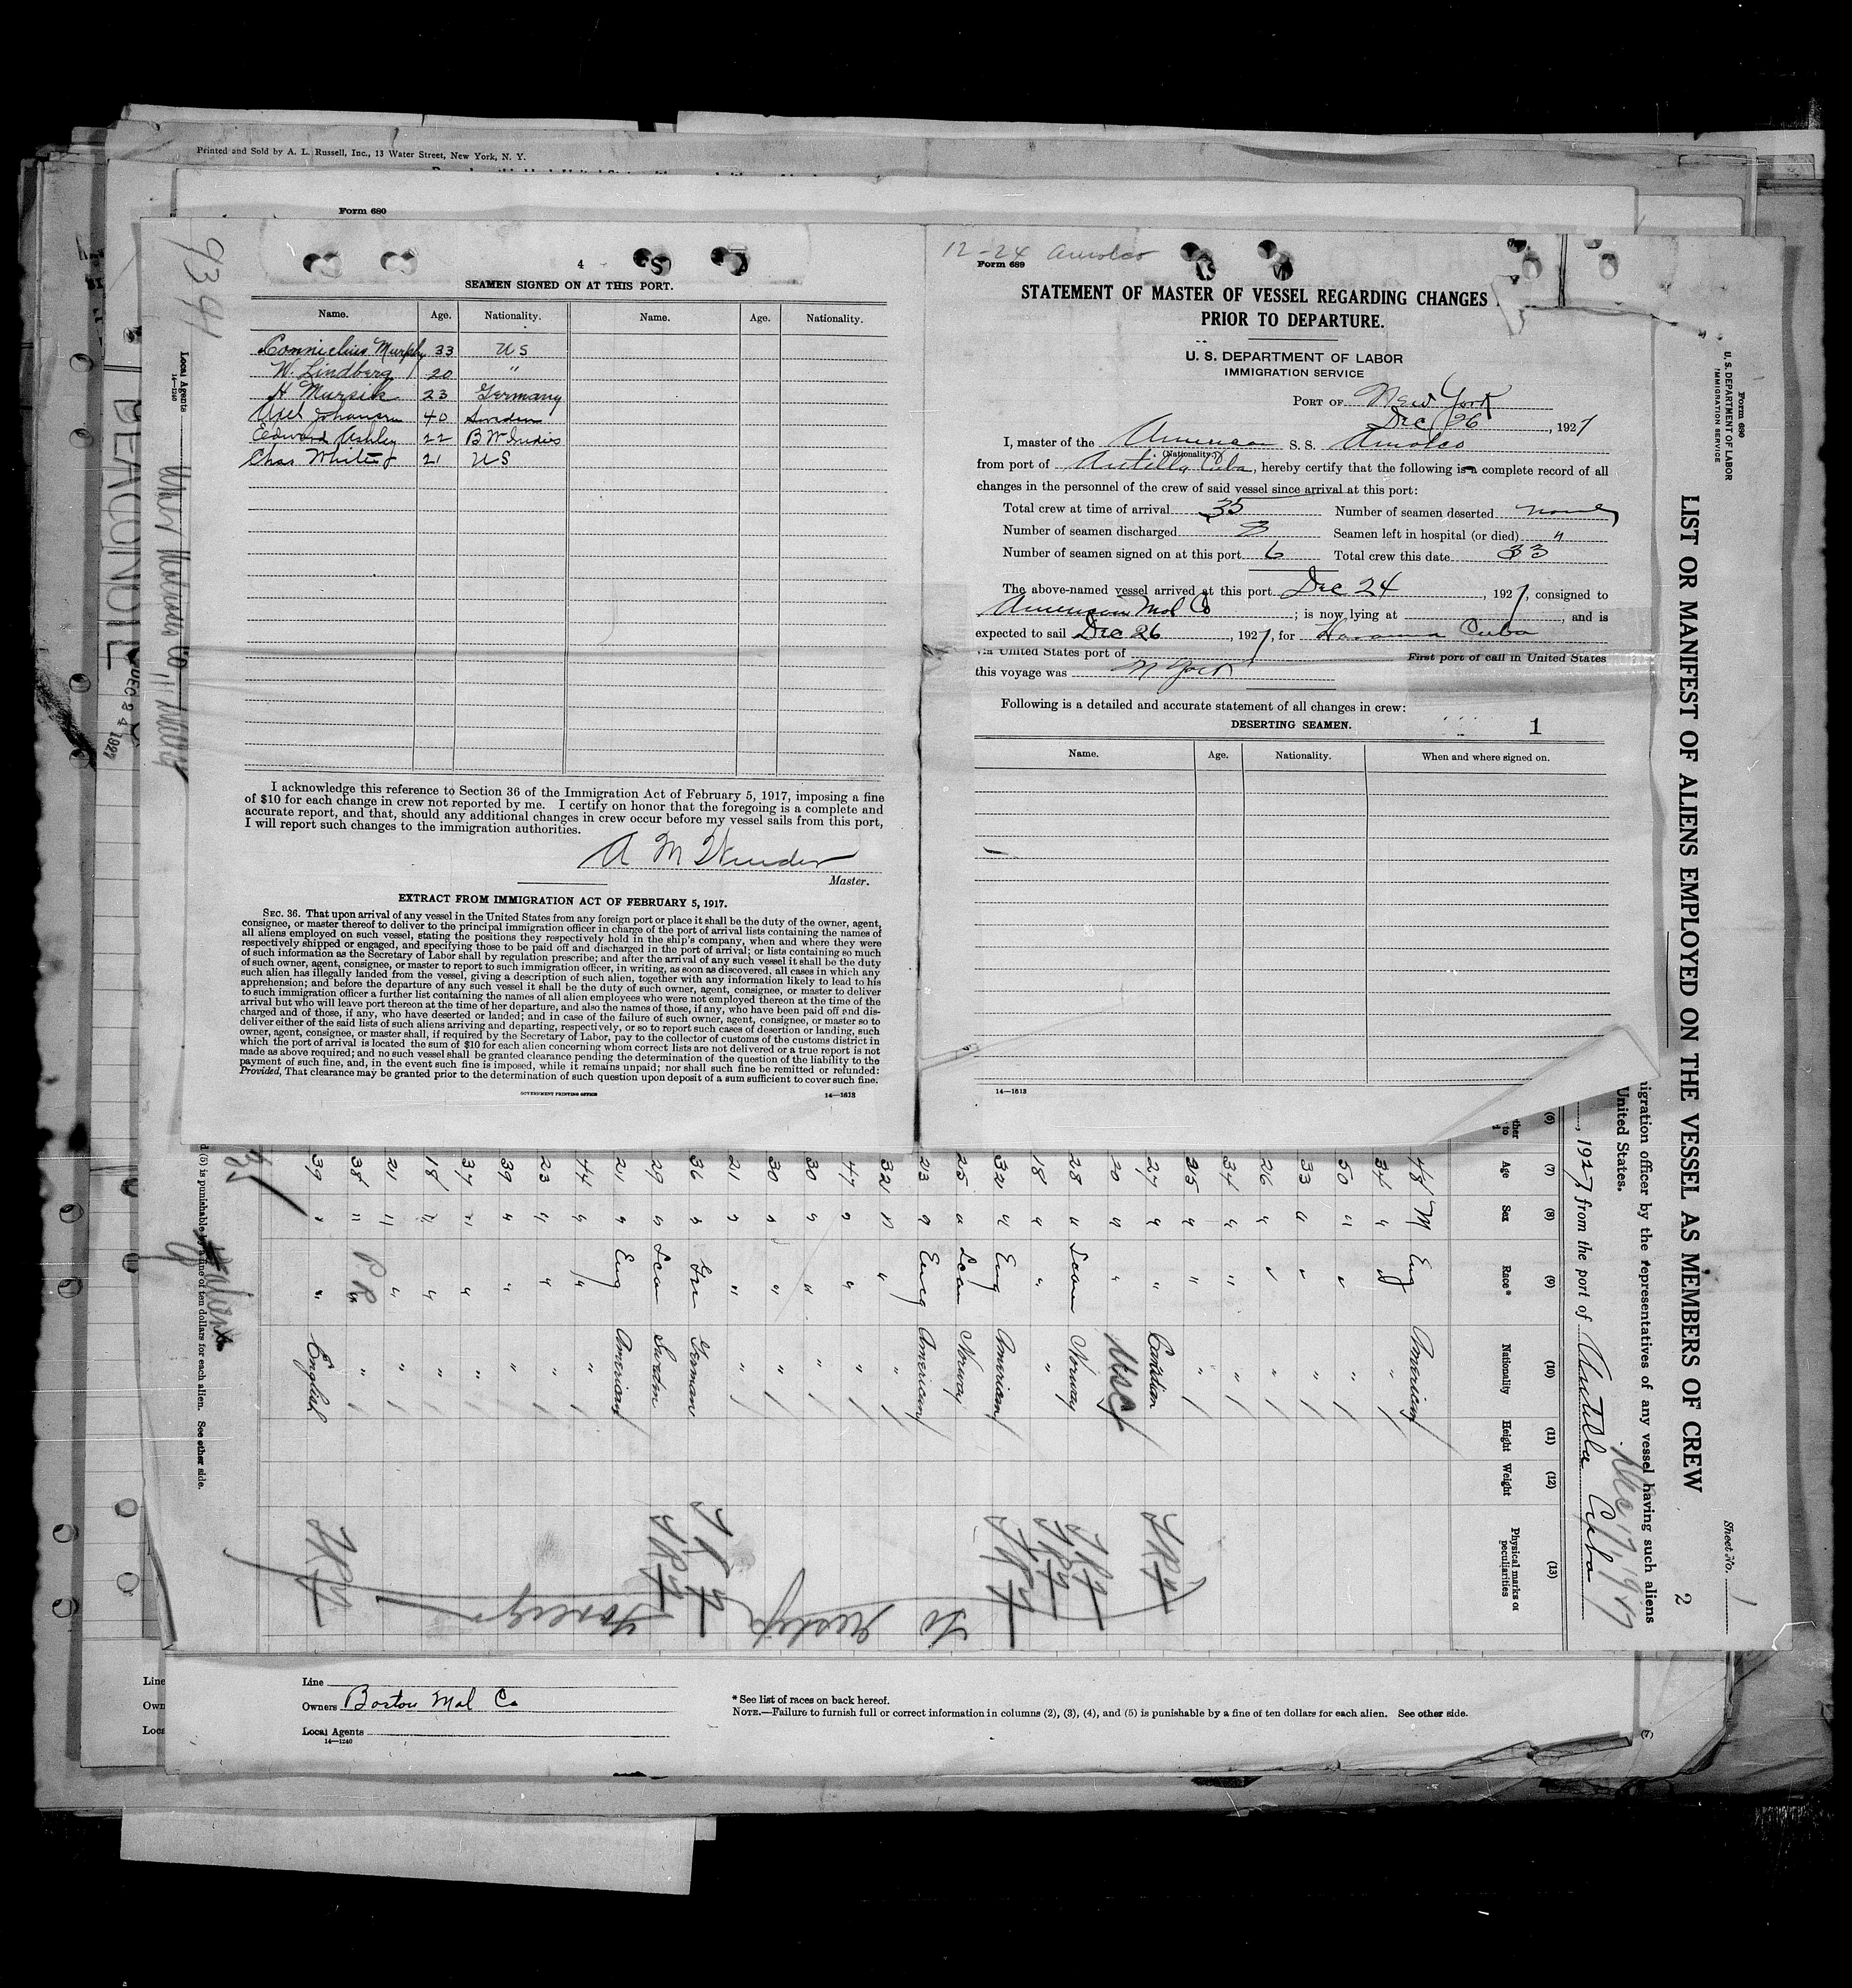 Printed and Sold by A. L. Russell, Inc., 13 Water Street, New York, N. Y.
Form 680
9394
4
SEAMEN SIGNED ON AT THIS PORT.
Name. Age. Nationality. Name. Age. Nationality.
Connielius Murphy 33 US
W. Lindberg 20 "
H Mursik 23 Germany
Axel Johansen 40 Sweden
Edward Ashley 22 B W Indies
Chas White 21 US
I acknowledge this reference to Section 36 of the Immigration Act of February 5, 1917, imposing a fine
of $10 for each change in crew not reported by me. I certify on honor that the foregoing is a complete and
accurate report, and that, should any additional changes in crew occur before my vessel sails from this port,
I will report such changes to the immigration authorities.
A M
Master.
EXTRACT FROM IMMIGRATION ACT OF FEBRUARY 5, 1917.
SEC. 36. That upon arrival of any vessel in the United States from any foreign port or place it shall be the duty of the owner, agent,
consignee, or master thereof to deliver to the principal immigration officer in charge of the port of arrival lists containing the names of
all aliens employed on such vessel, stating the positions they respectively hold in the ship's company, when and where they were
respectively shipped or engaged, and specifying those to be paid off and discharged in the port of arrival; or lists containing so much
of such information as the Secretary of Labor shall by regulation prescribe; and after the arrival of any such vessel it shall be the duty
of such owner, agent, consignee, or master to report to such immigration officer, in writing, as soon as discovered, all cases in which any
such alien has illegally landed from the vessel, giving a description of such alien, together with any information likely to lead to his
apprehension; and before the departure of any such vessel it shall be the duty of such owner, agent, consignee, or master to deliver
to such immigration officer a further list containing the names of all alien employees who were not employed thereon at the time of the
arrival but who will leave port thereon at the time of her departure, and also the names of those, if any, who have been paid off and dis-
charged and of those, if any, who have deserted or landed; and in case of the failure of such owner, agent, consignee, or master so to
deliver either of the said lists of such aliens arriving and departing, respectively, or so to report such cases of desertion or landing, such
owner, agent, consignee, or master shall, if required by the Secretary of Labor, pay to the collector of customs of the customs district in
which the port of arrival is located the sum of $10 for each alien concerning whom correct lists are not delivered or a true report is not
made as above required; and no such vessel shall be granted clearance pending the determination of the question of the liability to the
payment of such fine, and, in the event such fine is imposed, while it remains unpaid; nor shall such fine be remitted or refunded:
Provided, That clearance may be granted prior to the determination of such question upon deposit of a sum sufficient to cover such fine.
GOVERNMENT PRINTING OFFICE 14—1613
12-24 Amolco
Form 689
STATEMENT OF MASTER OF VESSEL REGARDING CHANGES
PRIOR TO DEPARTURE.
U. S. DEPARTMENT OF LABOR
IMMIGRATION SERVICE
PORT OF New York
Dec 26, 1927
I, master of the American S. S. Amolco
(Nationality.)
from port of Antilla Cuba, hereby certify that the following is a complete record of all
changes in the personnel of the crew of said vessel since arrival at this port:
Total crew at time of arrival 35 Number of seamen deserted none
Number of seamen discharged 8 Seamen left in hospital (or died) "
Number of seamen signed on at this port 6 Total crew this date 33
The above-named vessel arrived at this port Dec 24, 1927, consigned to
American Mol Co; is now lying at , and is
expected to sail Dec 26, 1927, for Havanna Cuba
via United States port of First port of call in United States
this voyage was N York
Following is a detailed and accurate statement of all changes in crew:
DESERTING SEAMEN. 1
Name. Age. Nationality. When and where signed on.
14—1613
Form 680
U. S. DEPARTMENT OF LABOR
IMMIGRATION SERVICE
Sheet No. 1
LIST OR MANIFEST OF ALIENS EMPLOYED ON THE VESSEL AS MEMBERS OF CREW
2
migration officer by the representatives of any vessel having such aliens
United States.
Dec 17, 1927
, 1927, from the port of Antilla Cuba
(6) (7) (8) (9) (10) (11) (12) (13)
Age Sex Race* Nationality Height Weight Physical marks or peculiarities
48 M Eng American
34 " " "
50 " " "
33 " " "
26 " " "
34 " " "
35 " " "
27 " " Canadian
20 " " USC
28 " Scan Norway
18 " " "
32 " Eng American
25 " Scan Norway
23 " Eng American
32 " " "
47 " " "
30 " " "
30 " " "
21 " " "
36 " Ger German
29 " Scan Sweden
21 " Eng American
44 " " "
23 " " "
39 " " "
37 " " "
18 " " "
21 " " "
38 " P.R. "
39 " " English
To Reship
Foreign
(5) is punishable by a fine of ten dollars for each alien. See other side.
Local Agents
14—1240
BEACONDILE
DEC 24 1927
Line
Owners Boston Mol Co
Local Agents
14—1240
* See list of races on back hereof.
NOTE.—Failure to furnish full or correct information in columns (2), (3), (4), and (5) is punishable by a fine of ten dollars for each alien. See other side.